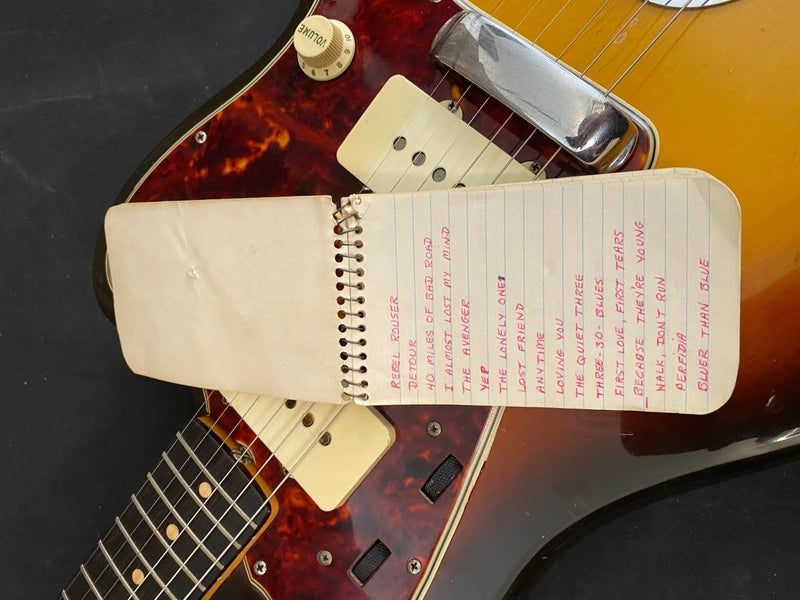 VOLUME
10
9
8
7
6
5
REBEL ROUSER
DETOUR
40 MILES OF BAD ROAD
I ALMOST LOST MY MIND
THE AVENGER
YEP
THE LONELY ONE
LOST FRIEND
ANYTIME
LOVING YOU
THE QUIET THREE
THREE-30-BLUES
FIRST LOVE, FIRST TEARS
BECAUSE THEY'RE YOUNG
WALK, DON'T RUN
PERFIDIA
BLUER THAN BLUE